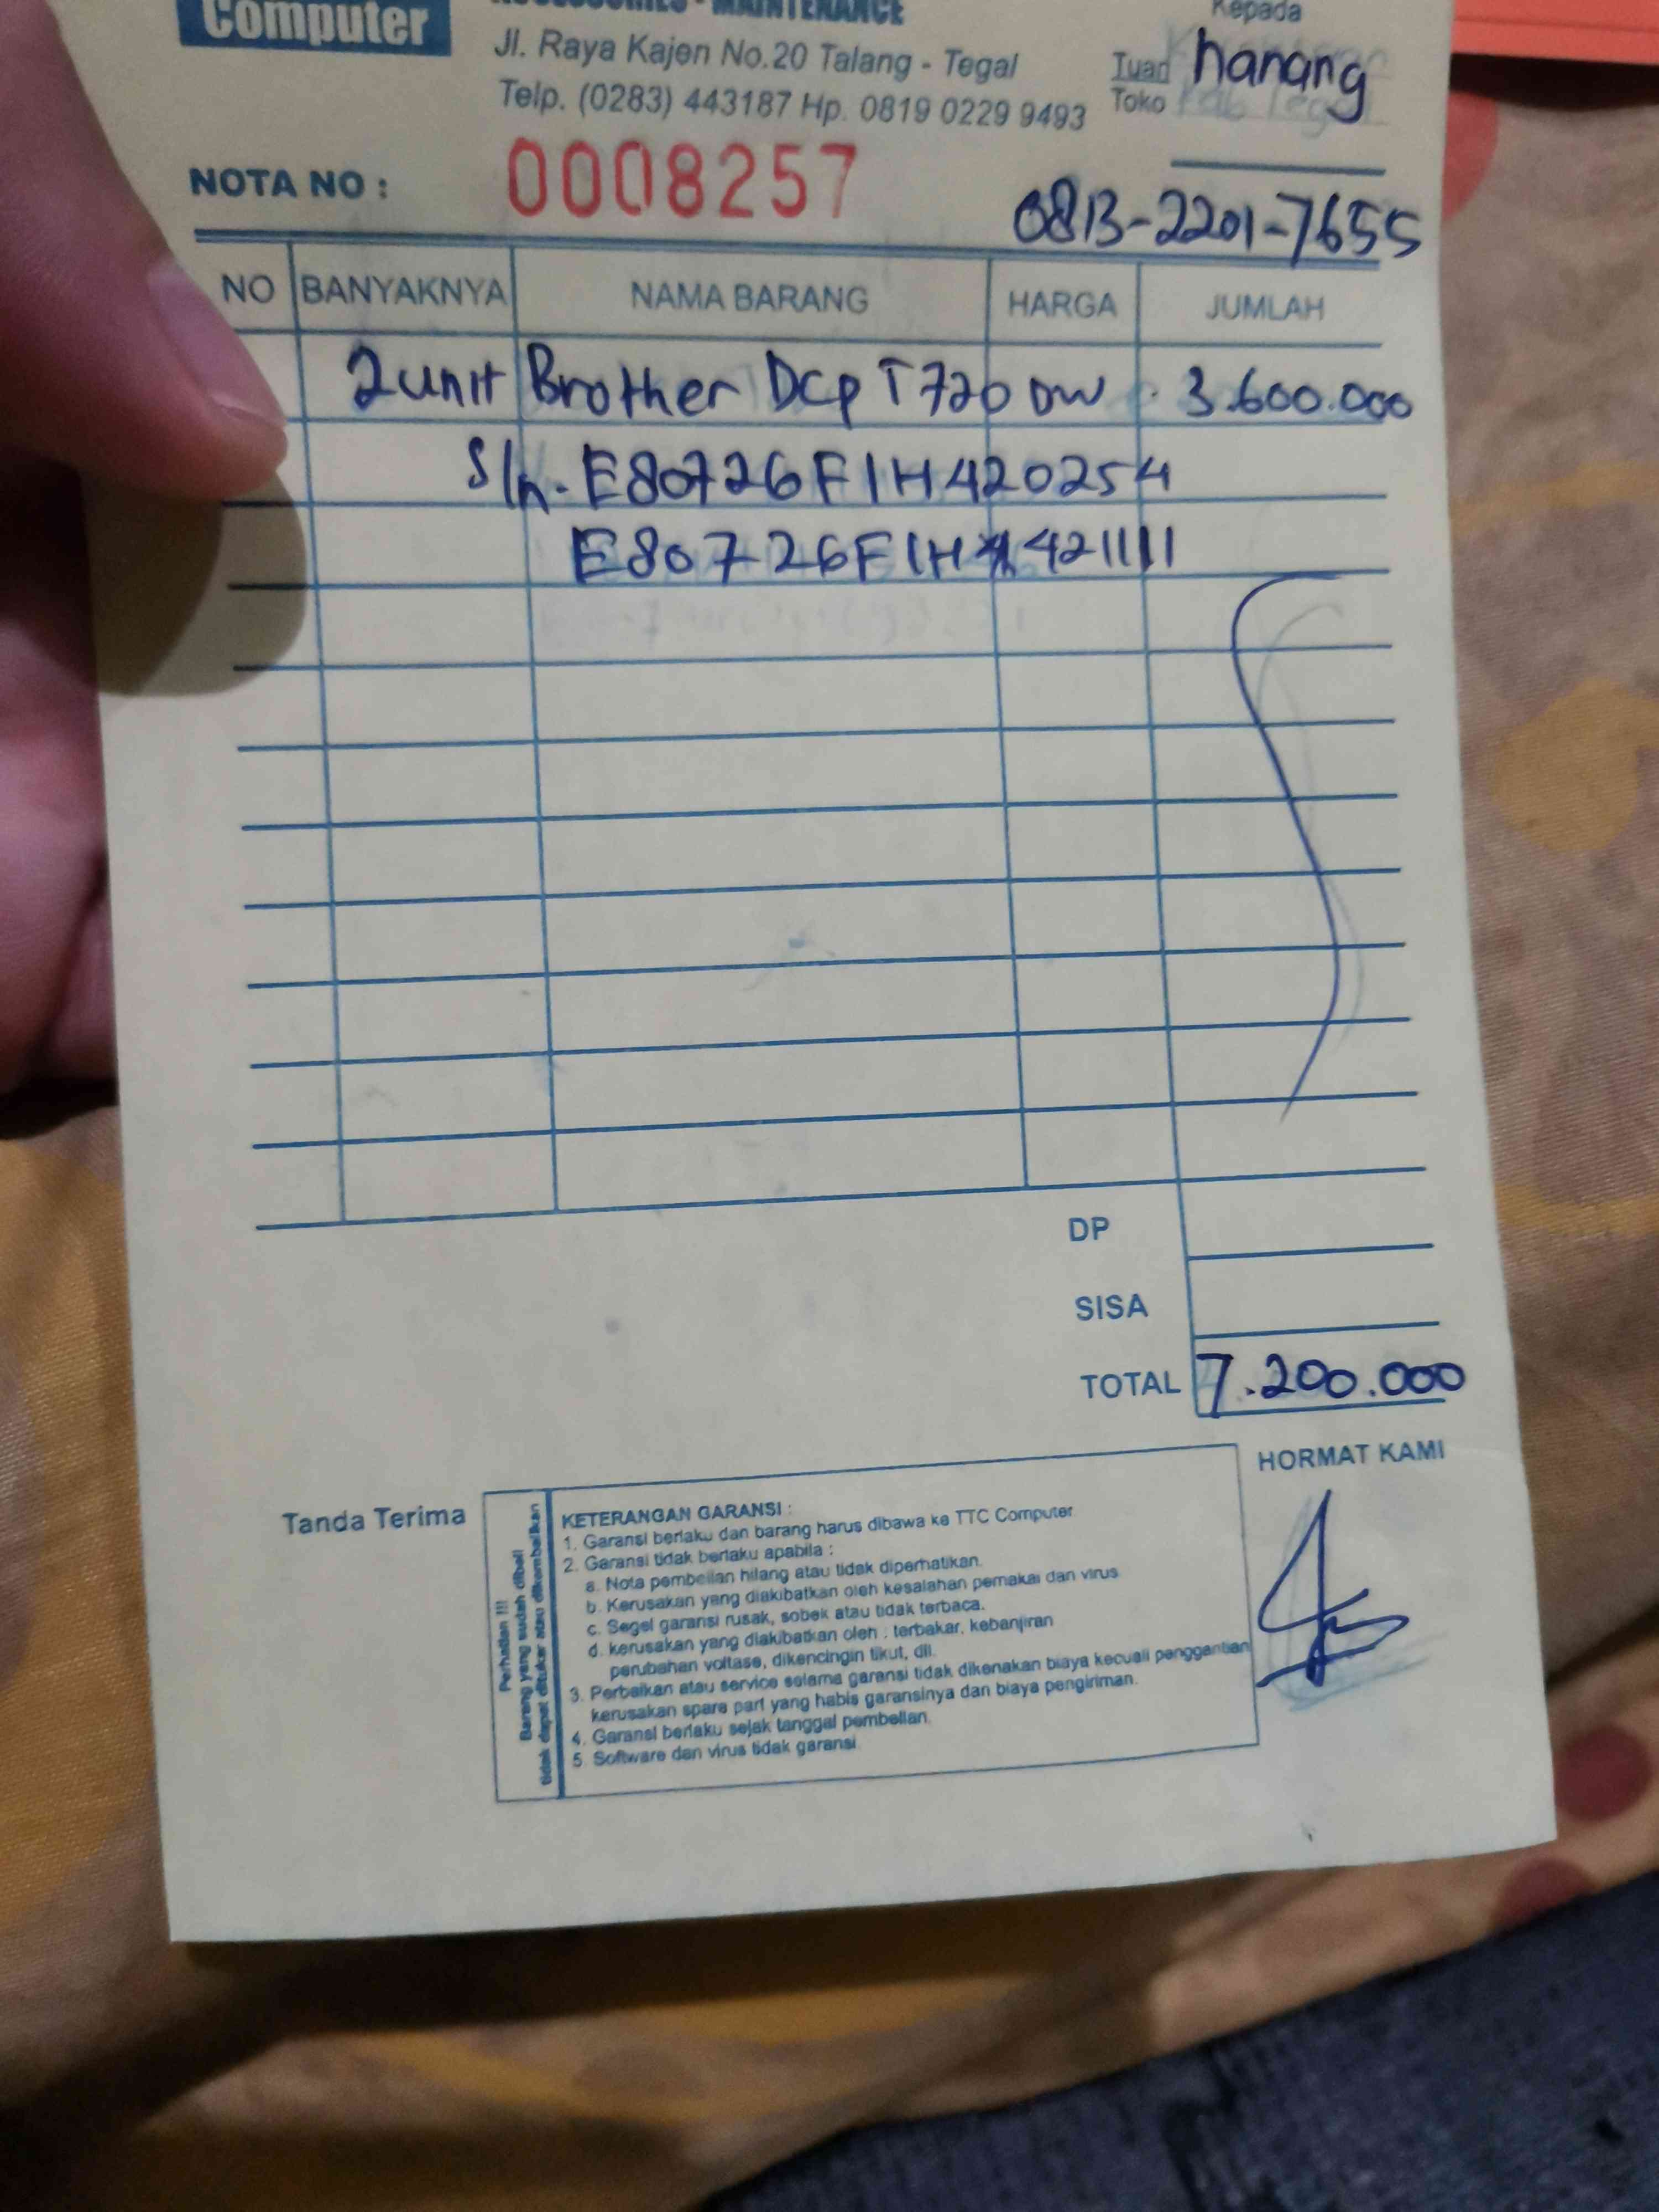 Computer
ACCESSORIES - MAINTENANCE
Jl. Raya Kajen No.20 Talang - Tegal
Telp. (0283) 443187 Hp. 0819 0229 9493
Kepada
Tuan nanang
Toko
NOTA NO : 0008257
0813-2201-7655
NO BANYAKNYA NAMA BARANG HARGA JUMLAH
2 unit Brother Dcp T720 DW 3.600.000
S/n. E80726F1H420254
E80726F1H421111
DP
SISA
TOTAL 7.200.000
HORMAT KAMI
Tanda Terima
Perhatian !!!
Barang yang sudah dibeli
tidak dapat ditukar atau dikembalikan
KETERANGAN GARANSI :
1. Garansi berlaku dan barang harus dibawa ke TTC Computer
2. Garansi tidak berlaku apabila :
a. Nota pembelian hilang atau tidak diperhatikan.
b. Kerusakan yang diakibatkan oleh kesalahan pemakai dan virus
c. Segel garansi rusak, sobek atau tidak terbaca.
d. kerusakan yang diakibatkan oleh : terbakar, kebanjiran
perubahan voltase, dikencingin tikut, dll.
3. Perbaikan atau service selama garansi tidak dikenakan biaya kecuali penggantian
kerusakan spare part yang habis garansinya dan biaya pengiriman.
4. Garansi berlaku sejak tanggal pembelian.
5. Software dan virus tidak garansi